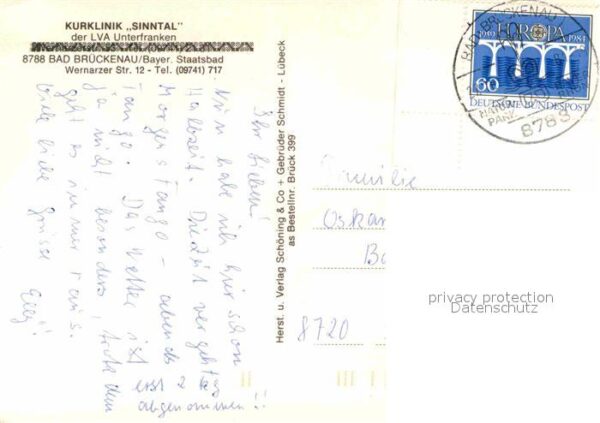 KURKLINIK „SINNTAL"
der LVA Unterfranken
8788 BAD BRÜCKENAU/Bayer. Staatsbad
Wernarzer Str. 12 - Tel. (09741) 717
Ihr Lieben!
Nun habe ich hier schon
Halbzeit. Die Zeit vergeht
Morgens Fango - abends
Tango. Das Wetter ist
ja nicht besonders, trotzdem
geht es immer raus.
erst 2 kg
abgenommen!!
Viele liebe Grüsse Elly!
Herst. u. Verlag Schöning & Co + Gebrüder Schmidt - Lübeck
as Bestellnr. Brück 399
BAD BRÜCKENAU
8788
1959 EUROPA 1984
60
DEUTSCHE BUNDESPOST
Familie
Oskar
8720
privacy protection
Datenschutz